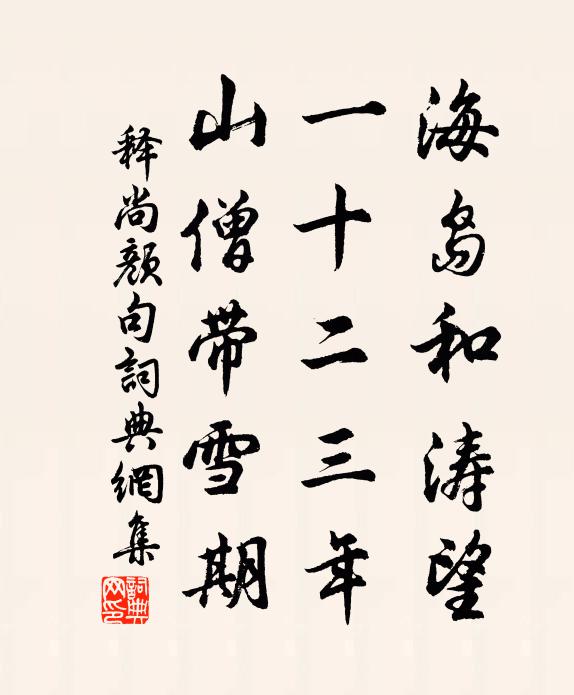 海岛和涛望
一十二三年
山僧带雪期
释尚颜句詞典網集
詞典网印